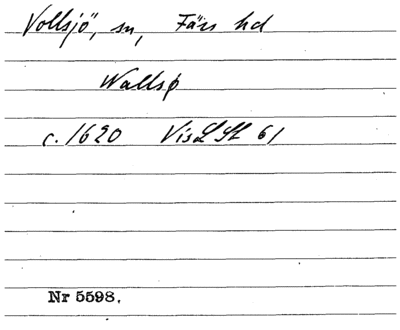 Vollsjö, sn, Färs hd
Wallsø
c. 1620 VisLSt 61
Nr 5598.